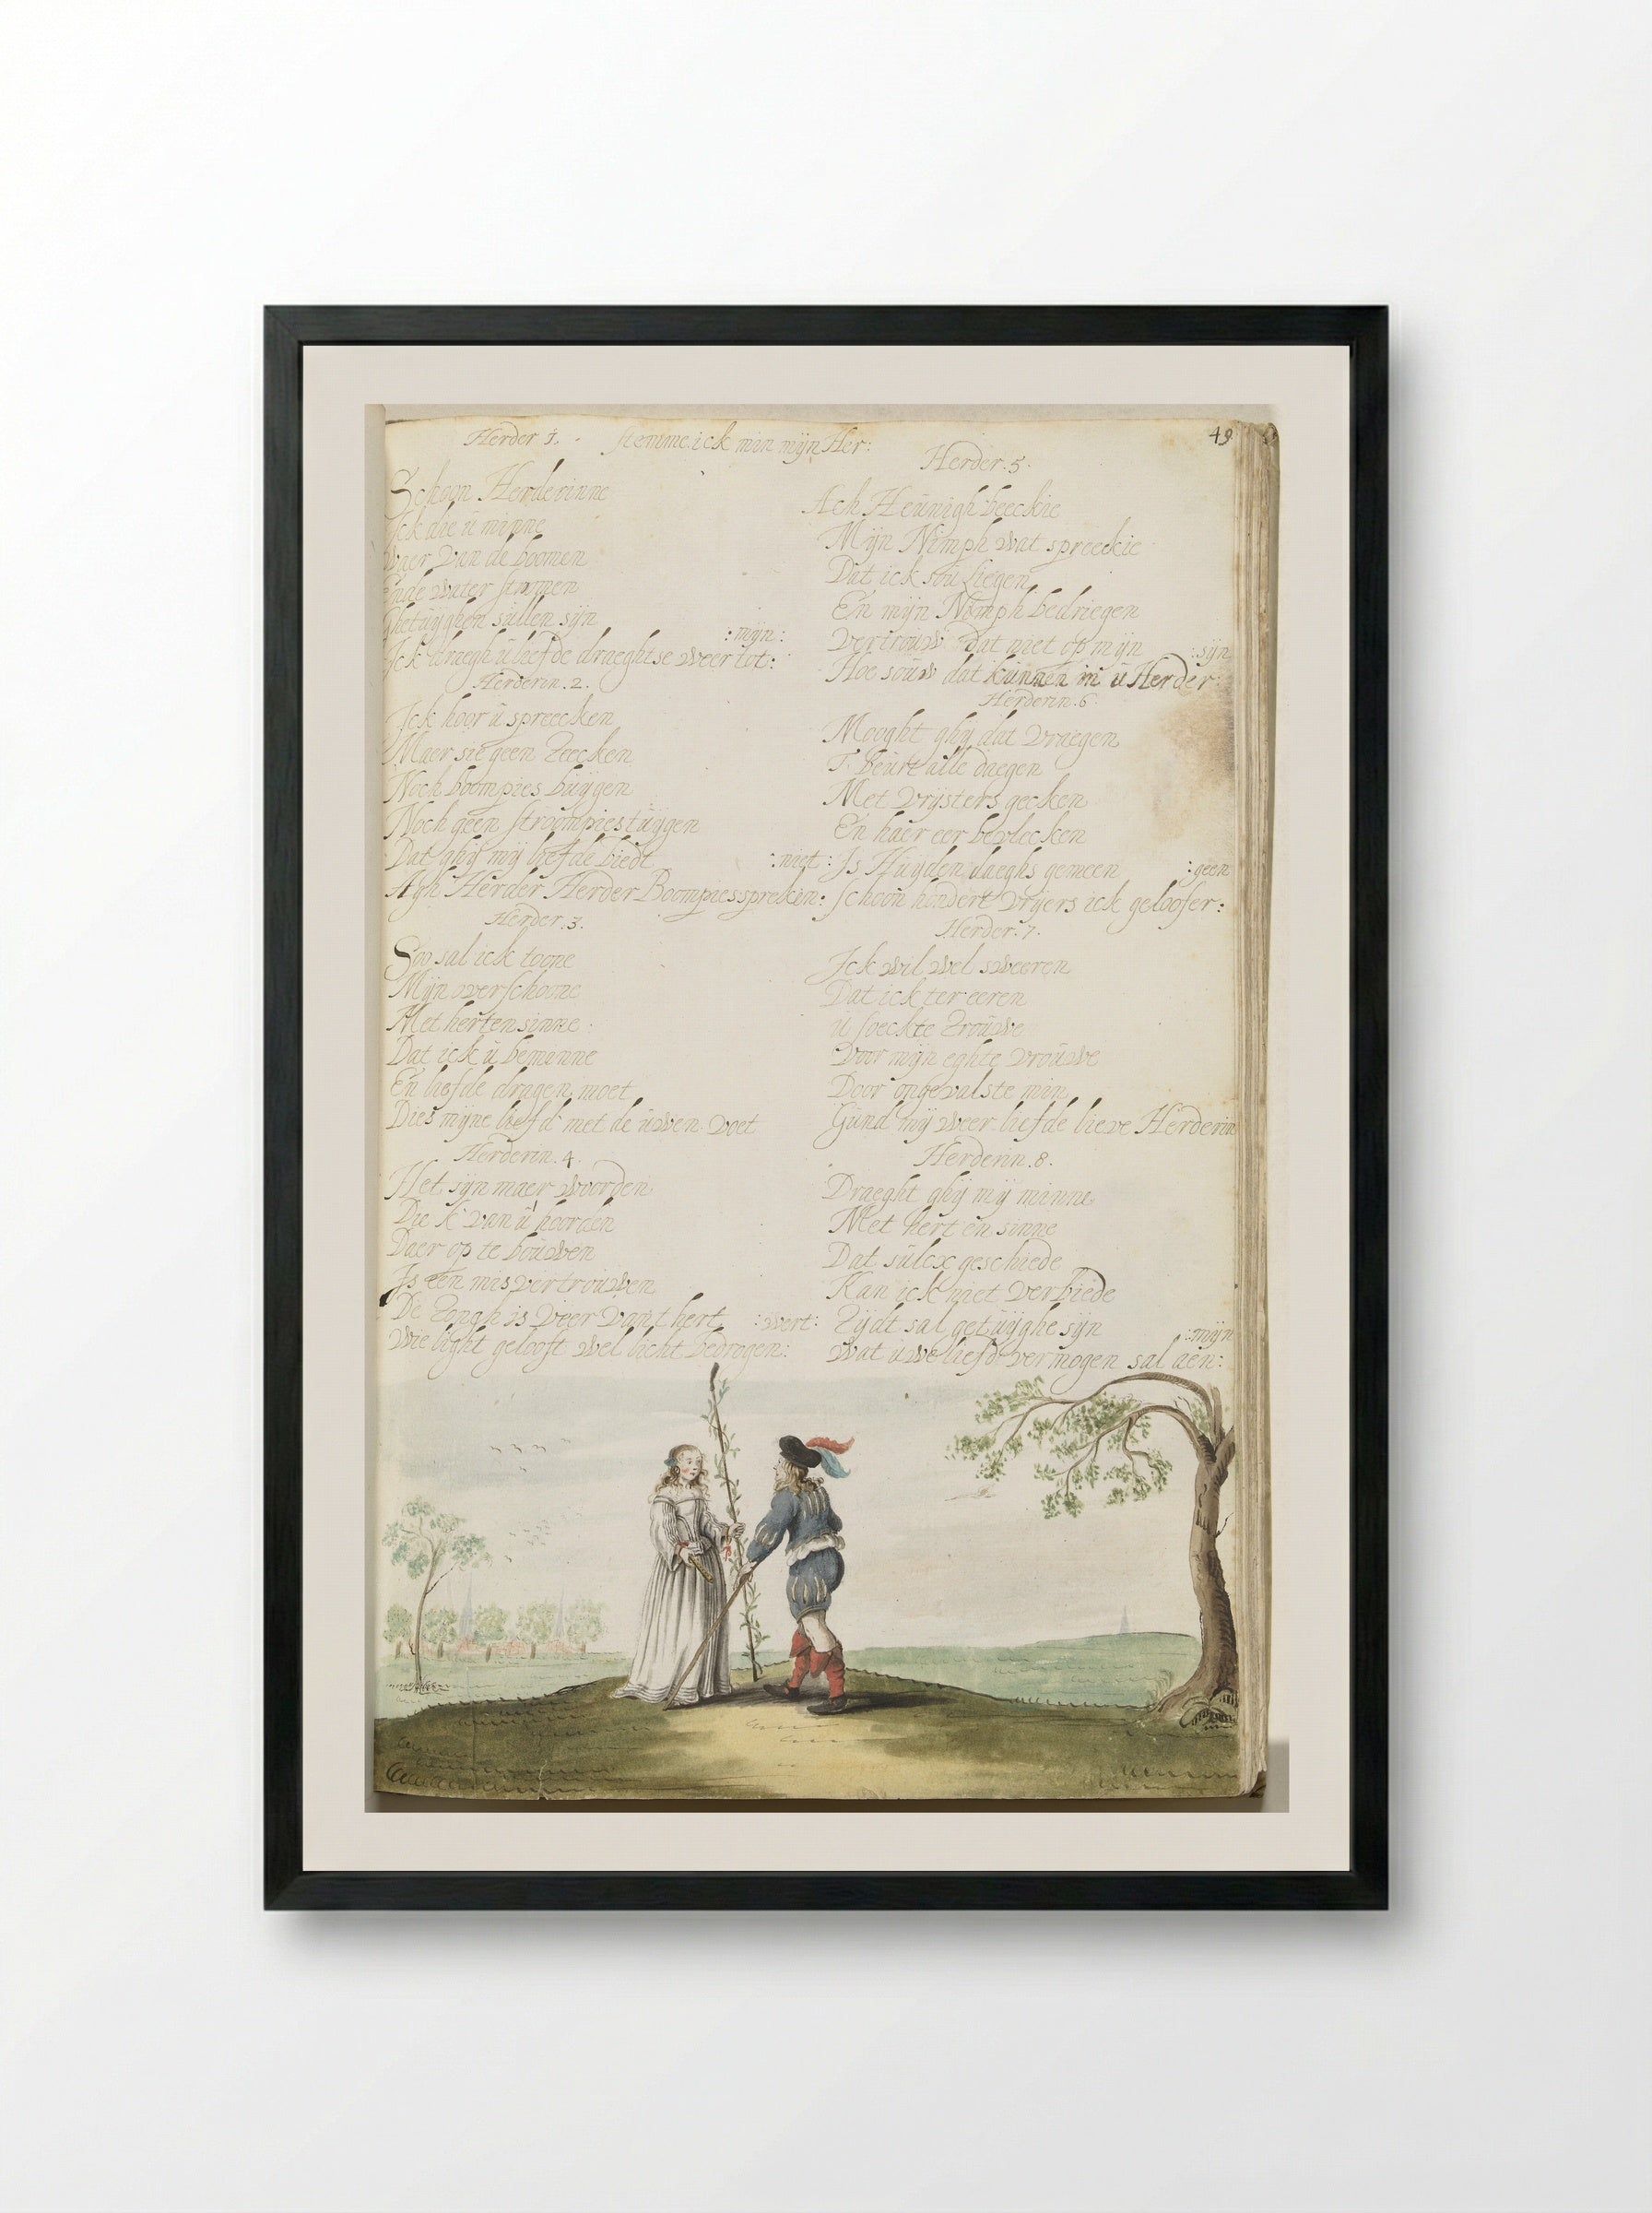 Herder 1. Stemme. ick min mijn Her:
Schoon Herderinne
Ick die ü minne
Waer van de boomen
Ende water stromen
Ghetüyghen süllen sijn
:mijn:
Ick draegh ü liefde draeght se weer tot:
Herderin.2.
Ick hoor ü spreecken
Maer sie geen Teecken
Noch boompies büygen
Noch geen stroompies tüygen
Dat ghij mij liefde biedt
:niet:
Agh Herder Herder Boompies spreken:
Herder.3.
Soo sal ick toone
Mijn overschoone
Met herten sinne
Dat ick ü beminne
En liefde dragen moet
Dies mijne liefd met de üwen voet
Herderin.4.
Het sijn maer woorden
Die k van ü hoorden
Daer op te boüwen
Is een misvertroüwen
De Tongh is veer vant hert
:wert:
Wie light gelooft wel licht bedrogen:
49
Herder.5.
Ach Heünigh beeckie
Mijn Nimph wat spreeckie
Dat ick soü Liegen
En mijn Nimph bedriegen
Vertroüw dat niet op mijn
:sijn
Hoe soüw dat künnen in ü Herder:
Herderin.6.
Mooght ghij dat vraegen
T. Beürt alle daegen
Met vrijsters gecken
En haer eer bevlecken
Is Hüyden daeghs gemeen
:geen
Schoon hondert vrijers ick geloofer:
Herder.7.
Ick wil wel sweeren
Dat ick ter eeren
ü soeckte Troüwe
Voor mijn eghte vroüwe
Door ongevalste min
Günd mij weer liefde lieve Herderin
Herderin.8.
Draeght ghij mij minne
Met hert en sinne
Dat sülcx geschiede
Kan ick niet verbiede
Tijdt sal getüijghe sijn
:mijn
Wat üwe liefde vermogen sal aen: